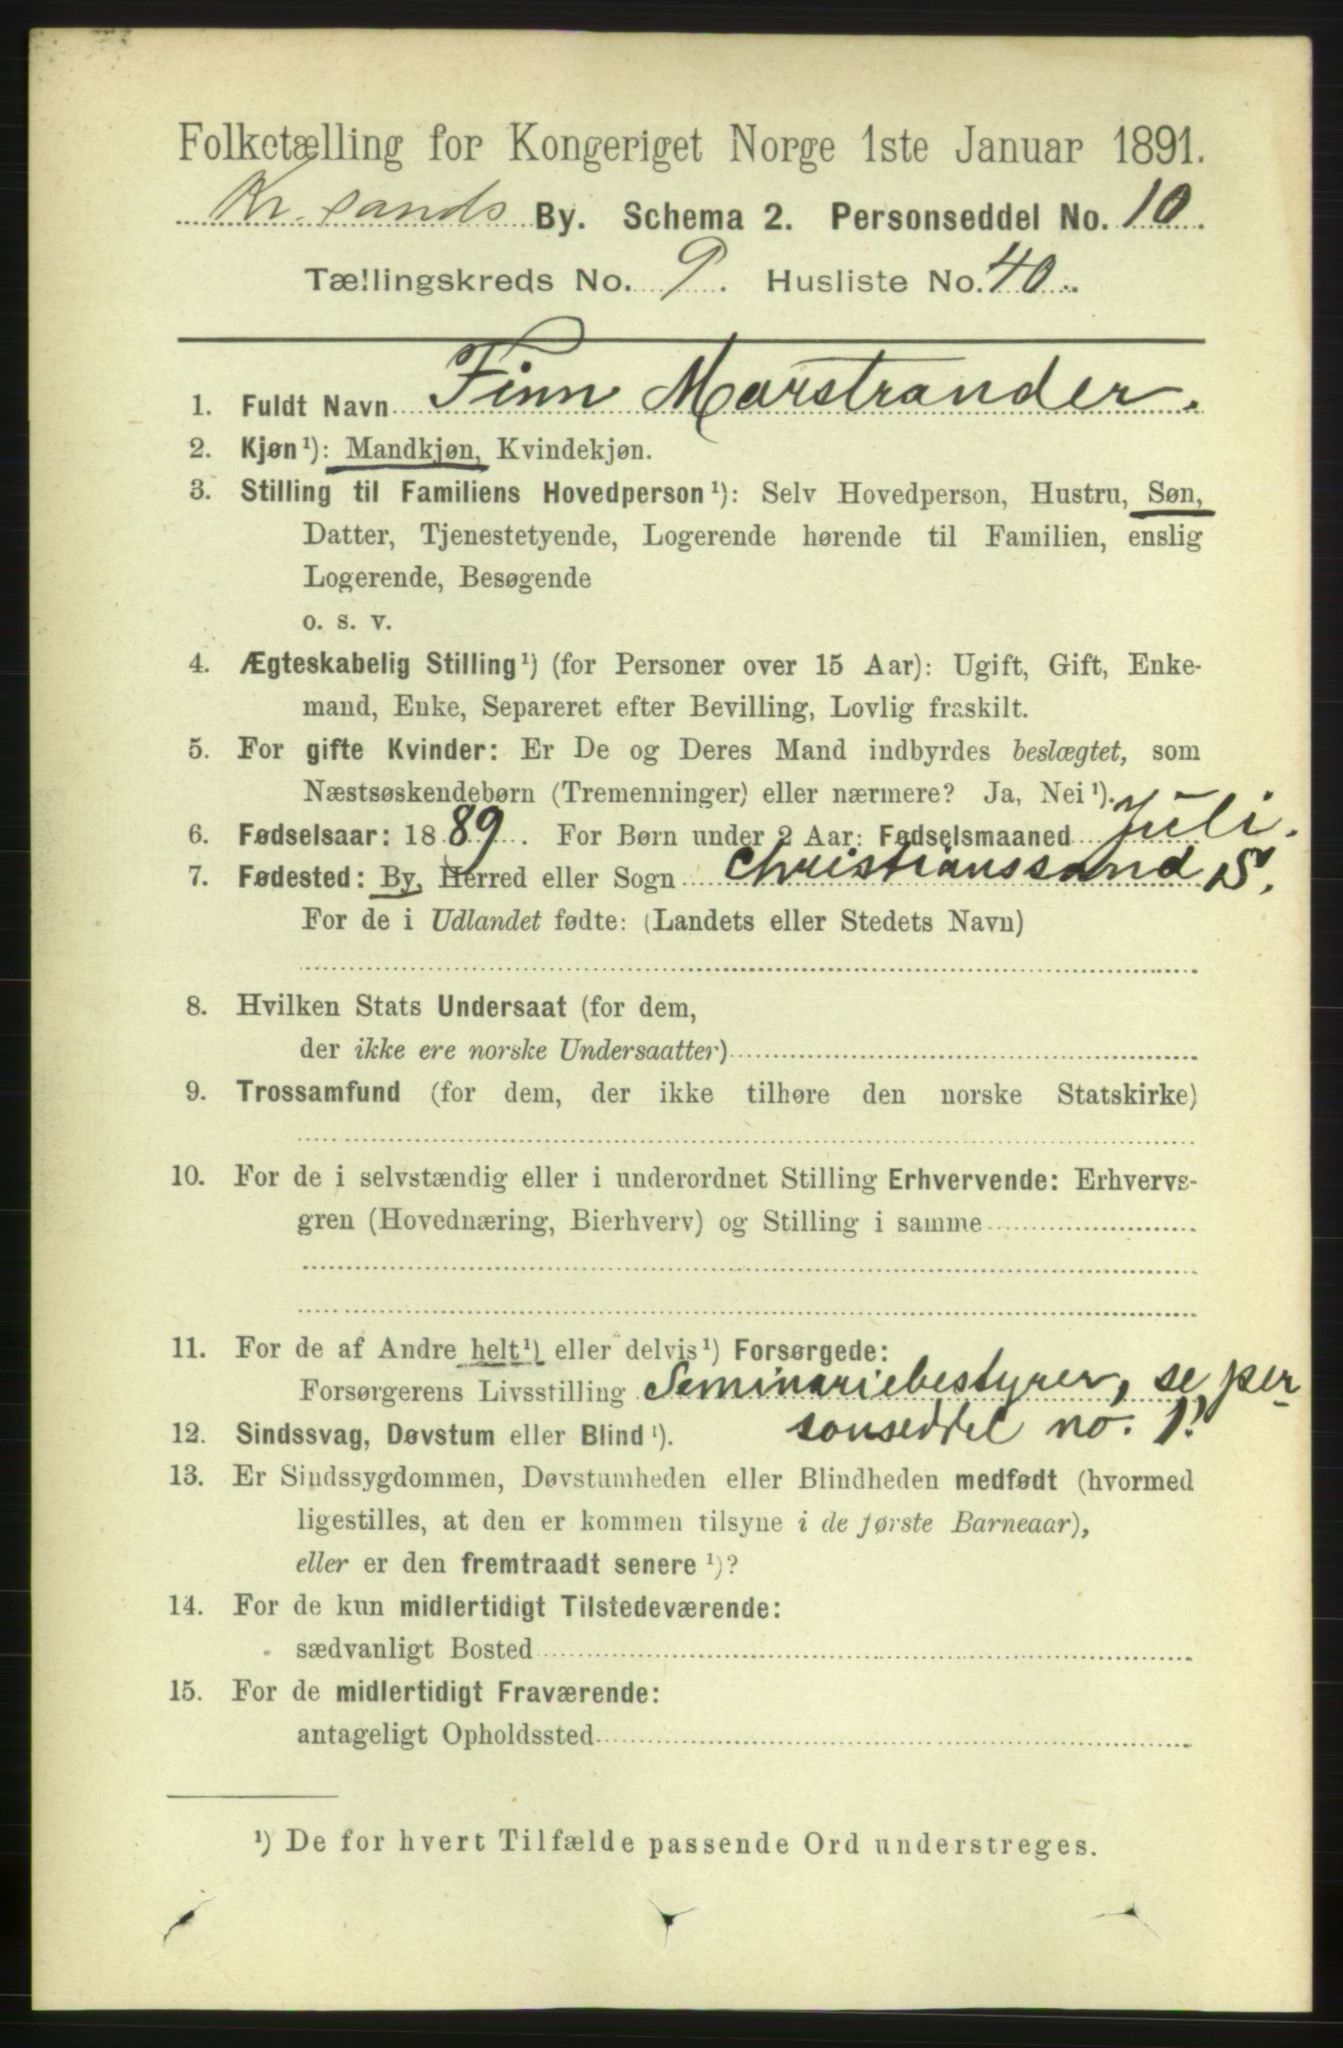 Folketælling for Kongeriget Norge 1ste Januar 1891.
Kr.sands By. Schema 2. Personseddel No. 10.
Tællingskreds No. 9. Husliste No. 40.
1. Fuldt Navn Finn Marstrander.
2. Kjøn¹): Mandkjøn, Kvindekjøn.
3. Stilling til Familiens Hovedperson¹): Selv Hovedperson, Hustru, Søn,
Datter, Tjenestetyende, Logerende hørende til Familien, enslig
Logerende, Besøgende
o. s. v.
4. Ægteskabelig Stilling¹) (for Personer over 15 Aar): Ugift, Gift, Enke-
mand, Enke, Separeret efter Bevilling, Lovlig fraskilt.
5. For gifte Kvinder: Er De og Deres Mand indbyrdes beslægtet, som
Næstsøskendebørn (Tremenninger) eller nærmere? Ja, Nei¹).
6. Fødselsaar: 1889. For Børn under 2 Aar: Fødselsmaaned Juli.
7. Fødested: By, Herred eller Sogn Christianssand S.
For de i Udlandet fødte: (Landets eller Stedets Navn)
8. Hvilken Stats Undersaat (for dem,
der ikke ere norske Undersaatter)
9. Trossamfund (for dem, der ikke tilhøre den norske Statskirke)
10. For de i selvstændig eller i underordnet Stilling Erhvervende: Erhvervs-
gren (Hovednæring, Bierhverv) og Stilling i samme
11. For de af Andre helt¹) eller delvis¹) Forsørgede:
Forsørgerens Livsstilling Seminariebestyrer, se per
12. Sindssvag, Døvstum eller Blind¹). sonseddel no. 1!
13. Er Sindssygdommen, Døvstumheden eller Blindheden medfødt (hvormed
ligestilles, at den er kommen tilsyne i de første Barneaar),
eller er den fremtraadt senere¹)?
14. For de kun midlertidigt Tilstedeværende:
sædvanligt Bosted
15. For de midlertidigt Fraværende:
antageligt Opholdssted
¹) De for hvert Tilfælde passende Ord understreges.